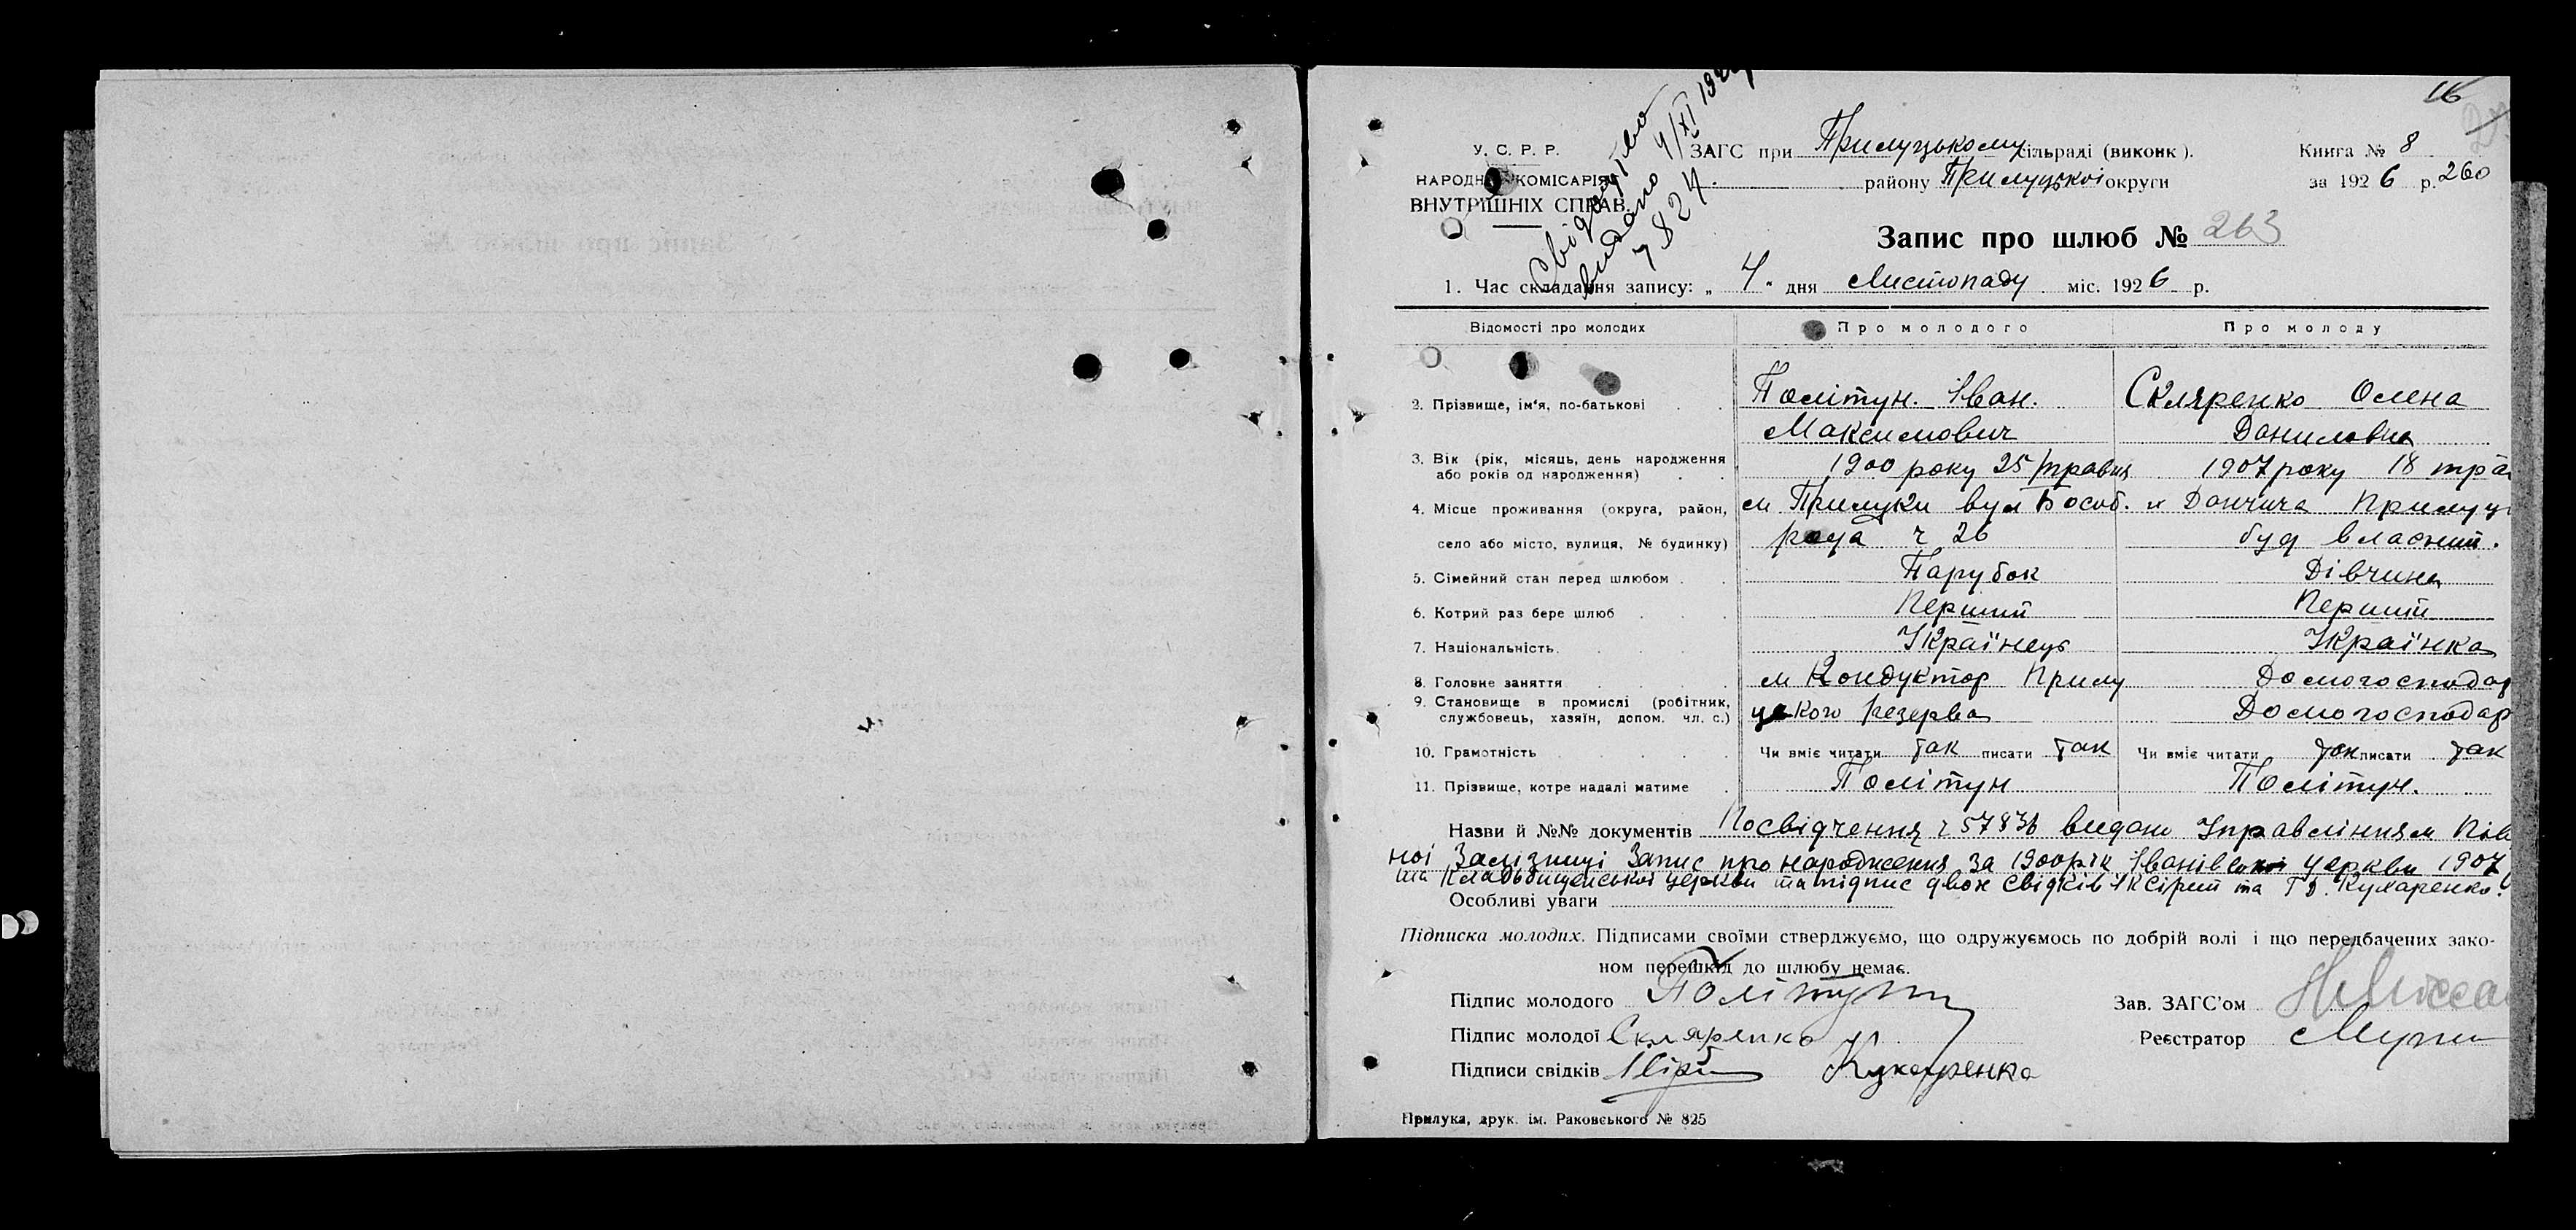 16
27
Свідоцтво
видано 4/XI 192
7824.
У. С. Р. Р.
НАРОДН КОМІСАРІЯТ
ВНУТРІШНІХ СПРАВ.
ЗАГС при Прилуцькому сільраді (виконк).
району Прилуцької округи
Книга № 8
за 1926 р. 260
Запис про шлюб № 263
1. Час складання запису: „4" дня Листопаду міс. 1926 р.
Відомості про молодих Про молодого Про молоду
2. Прізвище, ім'я, по-батькові Політун. Іван. Скляренко Олена
Максимович Даниловна
3. Вік (рік, місяць, день народження 1900 року 25/травня 1907 року 18 тра
або років од народження)
4. Місце проживання (округа, район, м Прилуки вул м Прилуц
село або місто, вулиця, № будинку) ч 26 буд власний.
5. Сімейний стан перед шлюбом Парубок Дівчина
6. Котрий раз бере шлюб Перший Перший
7. Національність Українець Українка
8. Головне заняття м Кондуктор Прилу Домогосподар
9. Становище в промислі (робітник, цького Резерва Домогосподар
службовець, хазяїн, допом. чл. с.)
10. Грамотність Чи вміє читати так писати так Чи вміє читати так писати так
11. Прізвище, котре надалі матиме Політун Політун.
Назви й №№ документів Посвідчення ч 57836 видане Управлінням Пів
ної Залізниці Запис про народження за 1900 рік Іванівської церкви 1907
та Кладбищенської церкви та підпис двох свідків та Кухаренко.
Особливі уваги
Підписка молодих. Підписами своїми стверджуємо, що одружуємось по добрій волі і що передбачених зако-
ном перешкід до шлюбу немає.
Підпис молодого Політун Зав. ЗАГС'ом
Підпис молодої Скляренко Реєстратор
Підписи свідків Кухаренко
Прилука, друк. ім. Раковського № 825